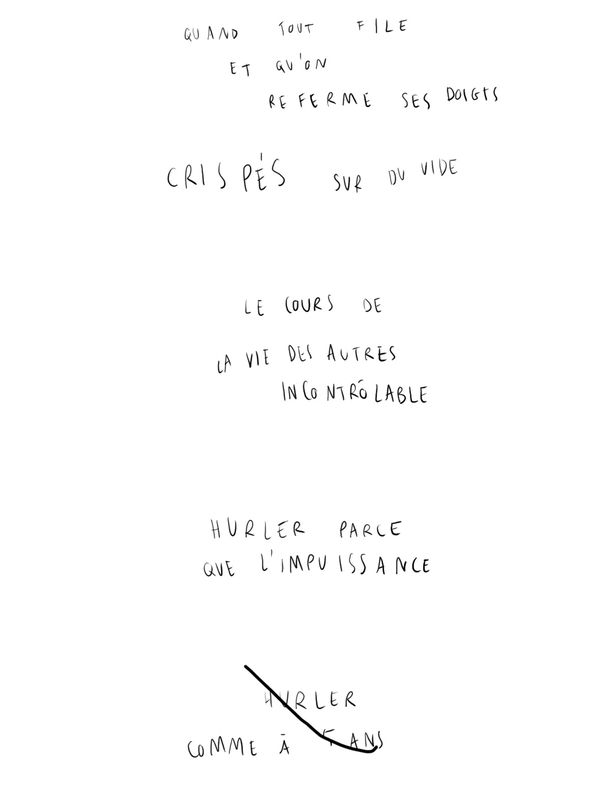 QUAND TOUT FILE
ET QU'ON
REFERME SES DOIGTS
CRISPÉS SUR DU VIDE
LE COURS DE
LA VIE DES AUTRES
INCONTRÔLABLE
HURLER PARCE
QUE L'IMPUISSANCE
HURLER
COMME À 5 ANS